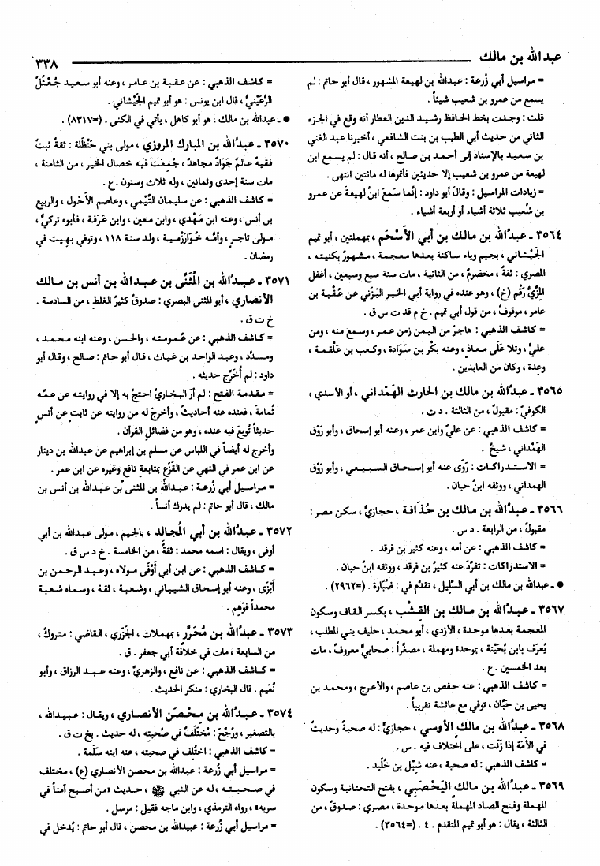 عبدالله بن مالك
٣٣٨
= مراسيل أبي زُرعة: عبدالله بن لهيعة المشهور، قال أبو حاتم: لم
يسمع من عمرو بن شعيب شيئاً.
قلت: وجدت بخط الحافظ رشيد الدين العطار أنه وقع في الجزء
الثاني من حديث أبي الطيب بن بنت الشافعي، أخبرنا عبد الغني
بن سعيد بالإسناد إلى أحمد بن صالح، أنه قال: لم يسمع ابن
لهيعة من عمرو بن شعيب إلا حديثين فأقرها له مائتين انتهى.
= زيادات المراسيل: وقال أبو داود: إنما سَمعَ ابنُ لهيعة عن عمرو
بن شُعيب ثلاثة أشياء أو أربعة أشياء.
٣٥٦٤ ـ عبدُالله بن مالك بن أبي الأَسْحَم، بمهملتين، أبو تميم
الجَيْشاني، بجيم وياء ساكنة بعدها معجمة، مشهورٌ بكنيته،
المصري: ثقةٌ، مخضرمٌ، من الثانية، مات سنة سبع وسبعين، أغفل
المِزِّيُّ رقم (خ)، وهو عنده في رواية أبي الخير اليَزَني عن عُقْبة بن
عامر، موقوف، من قول أبي تميم. خ م قد ت س ق.
= كاشف الذهبي: هاجرَ من اليمن زمن عمر، وسمع منه، ومن
عليٍّ، وتلا على معاذٍ، وعنه بكر بن سَوَادة، وكعب بن علقمة،
وعدة، وكان من العابدين.
٣٥٦٥ ـ عبدُالله بن مالك بن الحارث الهَمْداني، أو الأسدي،
الكوفيّ: مقبول، من الثالثة. د ت.
= كاشف الذهبي: عن عليّ وابن عمر، وعنه أبو إسحاق، وأبو رَوْق
الهَمْداني، شيخٌ.
= الاستدراكات: رَوَى عنه أبو إسحاق السبيعي، وأبو رَوْق
الهمداني، ووثقه ابنُ حبان.
٣٥٦٦ ـ عبدُالله بن مالك بن حُذَافة، حجازيٌّ، سكن مصر:
مقبول، من الرابعة. د س.
= كاشف الذهبي: عن أمه، وعنه كثير بن فرقد.
= الاستدراكات: تفرّد عنه كثيرُ بن فرقد، ووثقه ابنُ حبان.
● ـ عبدالله بن مالك بن أبي السُّلَيل، تقدَّم في: ضُبَارة. (=٢٩٦٢).
٣٥٦٧ ـ عبدُالله بن مالك بن القِشْب، بكسر القاف وسكون
المعجمة بعدها موحدة، الأزدي، أبو محمد، حليف بني المطلب،
يُعرَف بابن بُحَيْنة، بموحدة ومهملة، مصغَّراً: صحابيٌّ معروفٌ، مات
بعد الخمسين. ع.
= كاشف الذهبي: عنه حفص بن عاصم، والأعرج، ومحمد بن
يحيى بن حَبَّان، توفي مع عائشة تقريباً.
٣٥٦٨ ـ عبدُالله بن مالك الأوسي، حجازيٌّ: له صحبةٌ وحديثٌ
في الأَمَة إذا زنت، على اختلاف فيه. س.
= كاشف الذهبي: له صحبة، عنه شِبْل بن خُلَيد.
٣٥٦٩ ـ عبدُالله بن مالك اليَحْصبي، بفتح التحتانية وسكون
المهملة وفتح الصاد المهملة بعدها موحدة، مصري: صدوقٌ، من
الثالثة، يقال: هو أبو تميم المتقدم. ٤. (=٣٥٦٤).
= كاشف الذهبي: عن عقبة بن عامر، وعنه أبو سعيد جُعْثُل
الرُّعَيْنيُّ، قال ابن يونس: هو أبو تميم الجَيْشاني.
● ـ عبدالله بن مالك: هو أبو كاهل، يأتي في الكنى. (=٨٣١٧).
٣٥٧٠ ـ عبدُالله بن المبارك المروزي، مولى بني حَنْظَلة: ثقةٌ ثبتٌ
فقيهٌ عالمٌ جَوَادٌ مجاهدٌ، جُمعت فيه خصال الخير، من الثامنة،
مات سنة إحدى وثمانين، وله ثلاث وستون. ع.
= كاشف الذهبي: عن سليمان التَّيْمي، وعاصم الأحول، والربيع
بن أنس، وعنه ابن مَهْدي، وابن معين، وابن عَرَفة، فأبوه تركيٌّ،
مولى تاجرٍ، وأمُّه خُوَارَزْمية، ولد سنة ١١٨، وتوفي بهِيت في
رمضان.
٣٥٧١ ـ عبدُالله بن المُثَنَّى بن عبدالله بن أنس بن مالك
الأنصاري، أبو المثنى البصري: صدوقٌ كثيرُ الغلط، من السادسة.
خ ت ق.
= كاشف الذهبي: عن عُمومته، والحسن، وعنه ابنه محمد،
ومسدَّد، وعبد الواحد بن غياث، قال أبو حاتم: صالح، وقال أبو
داود: لم أُخرِّج حديثه.
= مقدمة الفتح: لم أرَ البخاري احتجَّ به إلا في روايته عن عمّه
ثُمامة، فعنده عنه أحاديثُ، وأخرج له من روايته عن ثابت عن أنسٍ
حديثاً تُوبِعَ فيه عنده، وهو من فضائل القرآن.
وأخرج له أيضاً في اللباس عن مسلم بن إبراهيم عن عبدالله بن دينار
عن ابن عمر في النهي عن القَزَع بمتابعة نافع وغيره عن ابن عمر.
= مراسيل أبي زُرعة: عبدالله بن المُثَنَّى بن عبدالله بن أنس بن
مالك، قال أبو حاتم: لم يدرك أنساً.
٣٥٧٢ ـ عبدُالله بن أبي المُجالد، بالجيم، مولى عبدالله بن أبي
أوفى، ويقال: اسمه محمد: ثقةٌ، من الخامسة. خ د س ق.
= كاشف الذهبي: عن ابن أبي أَوْفَى مولاه، وعبد الرحمن بن
أَبْزَى، وعنه أبو إسحاق الشيباني، وشعبة، ثقة، وسماه شعبة
محمداً فوَهِم.
٣٥٧٣ ـ عبدُالله بن مُحَرَّر، بمهملات، الجَزَري، القاضي: متروكٌ،
من السابعة، مات في خلافة أبي جعفر. ق.
= كاشف الذهبي: عن نافع، والزهري، وعنه عبد الرزاق، وأبو
نُعَيم، قال البخاري: منكر الحديث.
٣٥٧٤ ـ عبدُالله بن مِحْصَن الأنصاري، ويقال: عبيدالله،
بالتصغير، ورُجِّحَ: مُخْتَلَفٌ في صُحبته، له حديث. بخ ت ق.
= كاشف الذهبي: اختُلِف في صحبته، عنه ابنه سلمة.
= مراسيل أبي زُرعة: عبدالله بن محصن الأنصاري (ع)، مختلف
في صحبته، له عن النبي ﷺ، حديث «من أصبح آمناً في
سربه» رواه الترمذي، وابن ماجه فقيل: مرسل.
= مراسيل أبي زُرعة: عبيدالله بن محصن، قال أبو حاتم: يُدخل في